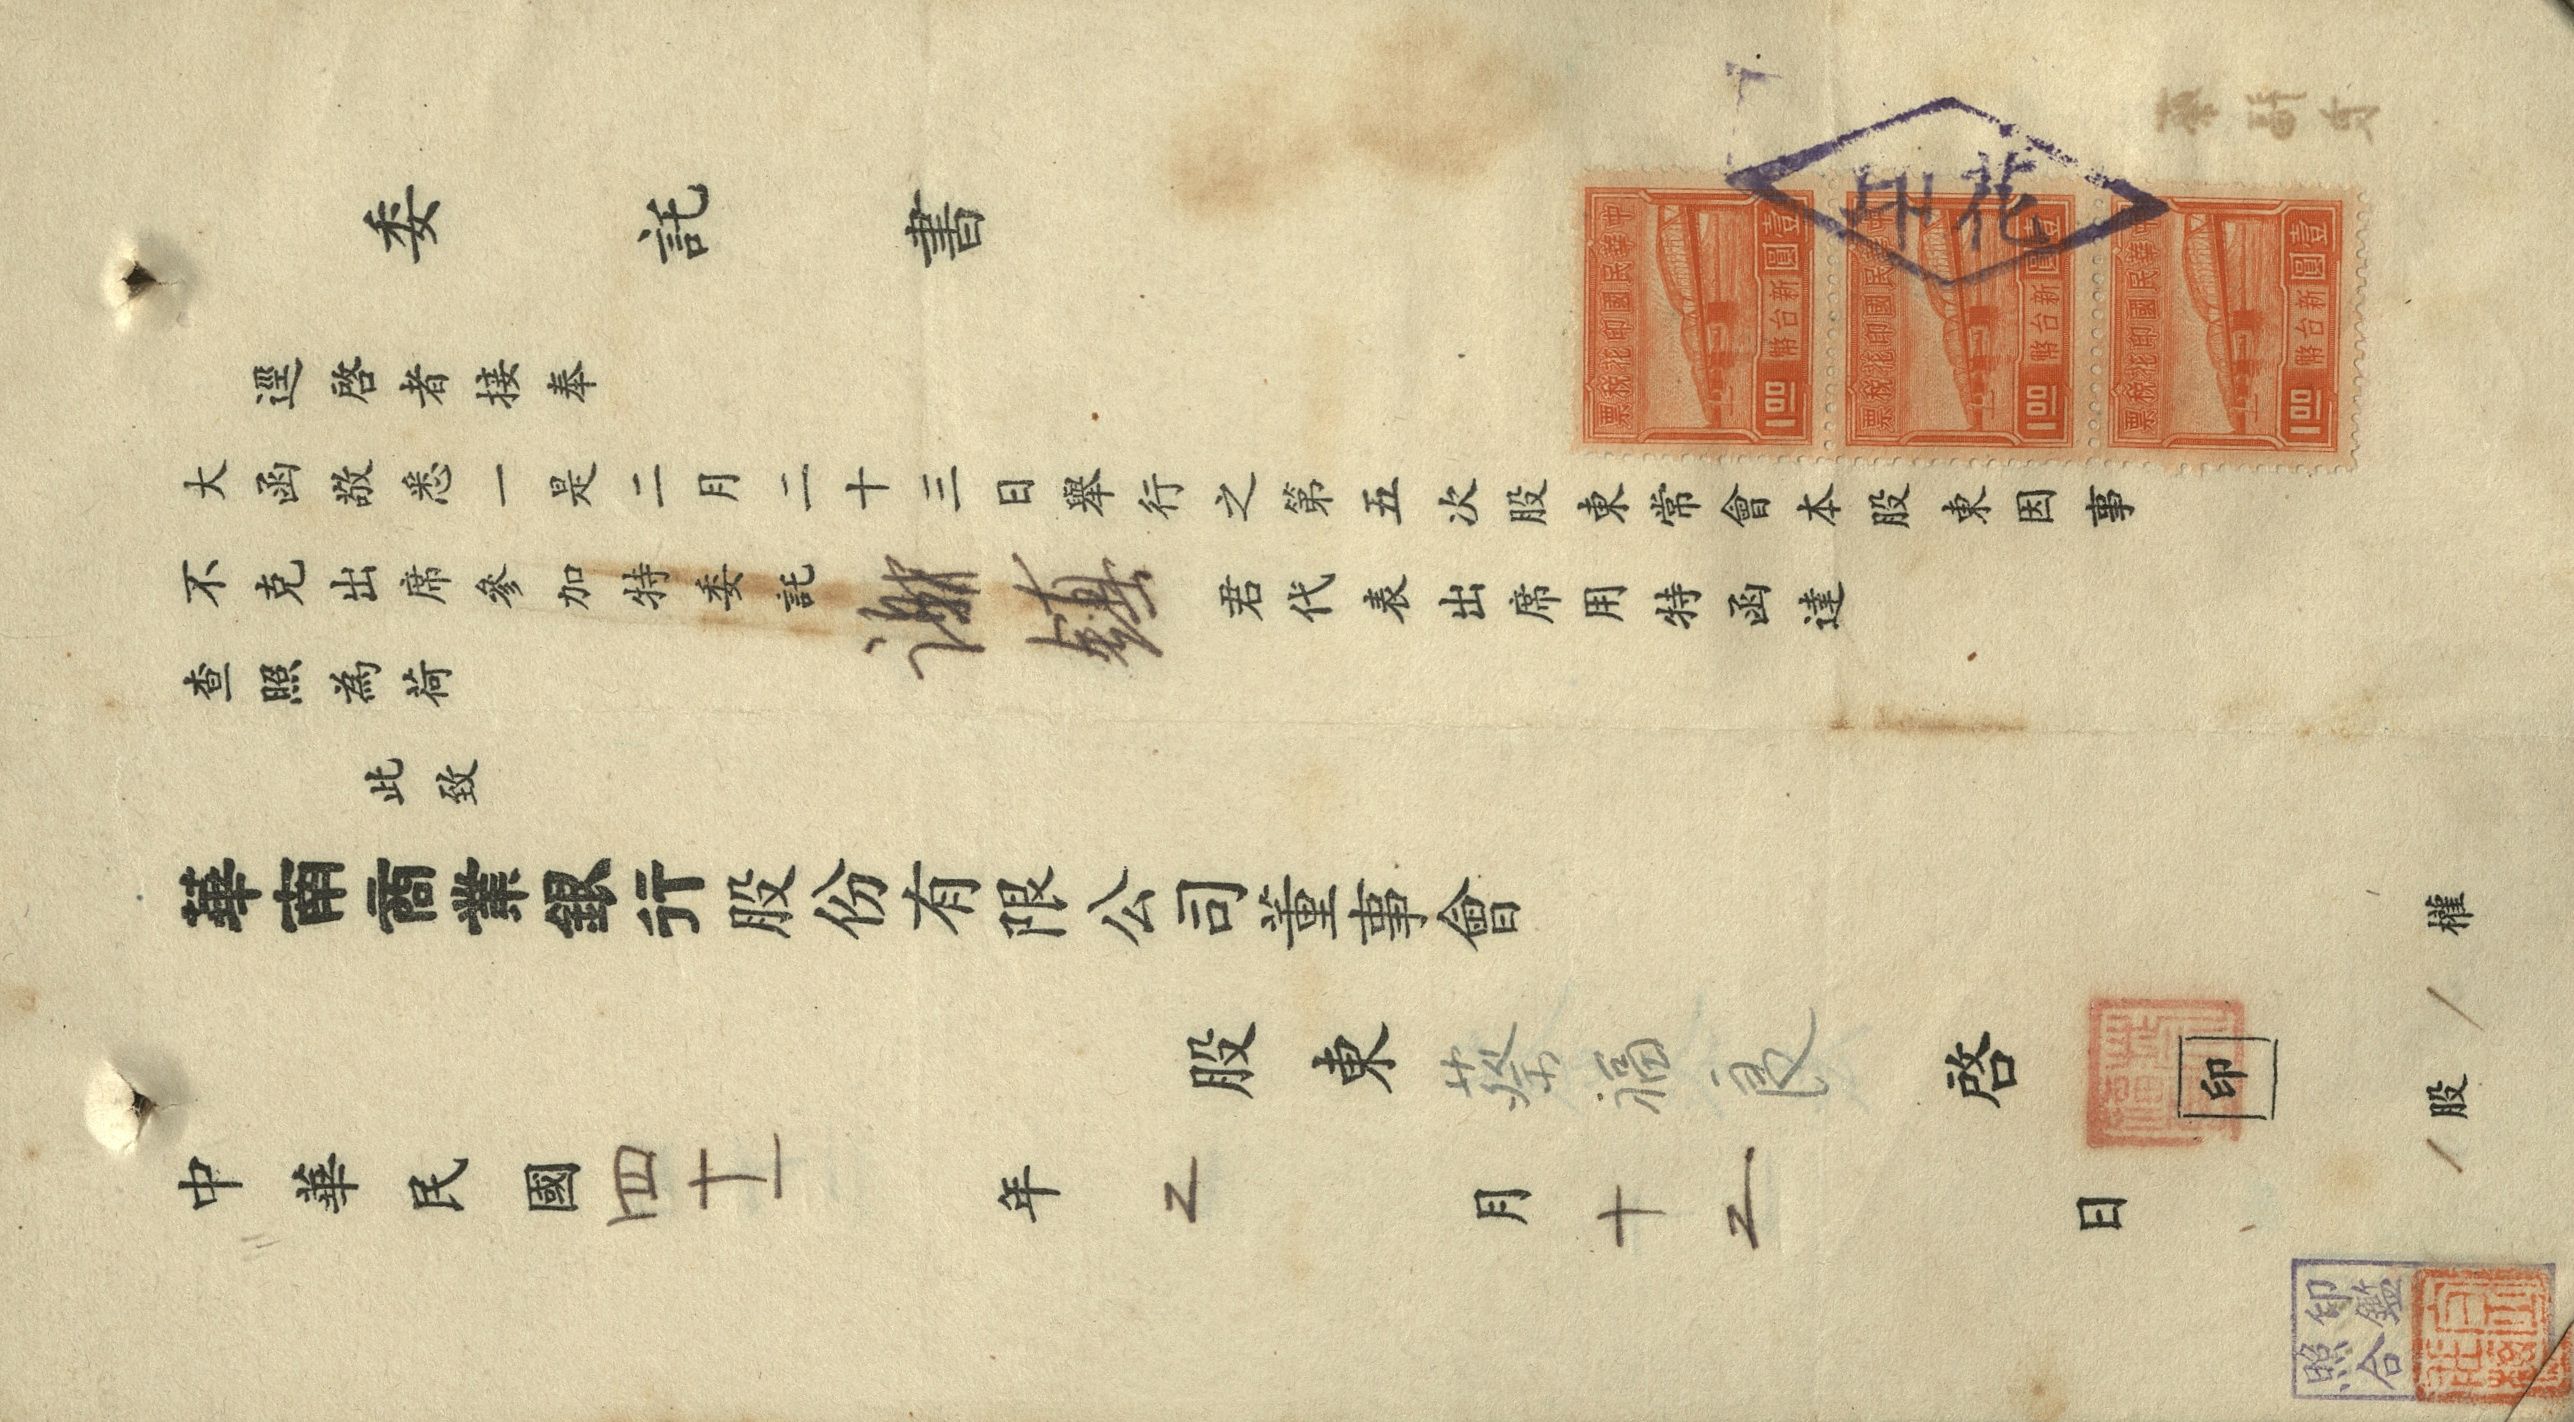 委託書
逕啓者接奉
大函敬悉一是二月二十三日舉行之第五次股東常會本股東因事
不克出席參加特委託謝 君代表出席用特函達
查照為荷
此致
華南商業銀行股份有限公司董事會
股東蔡福良啓 印
中華民國四十一年2月十2日
股 / 權 /
中華民國印花稅票
新台幣壹圓
1.00
中華民國印花稅票
新台幣壹圓
1.00
中華民國印花稅票
新台幣壹圓
1.00
印花
印鑑
照合